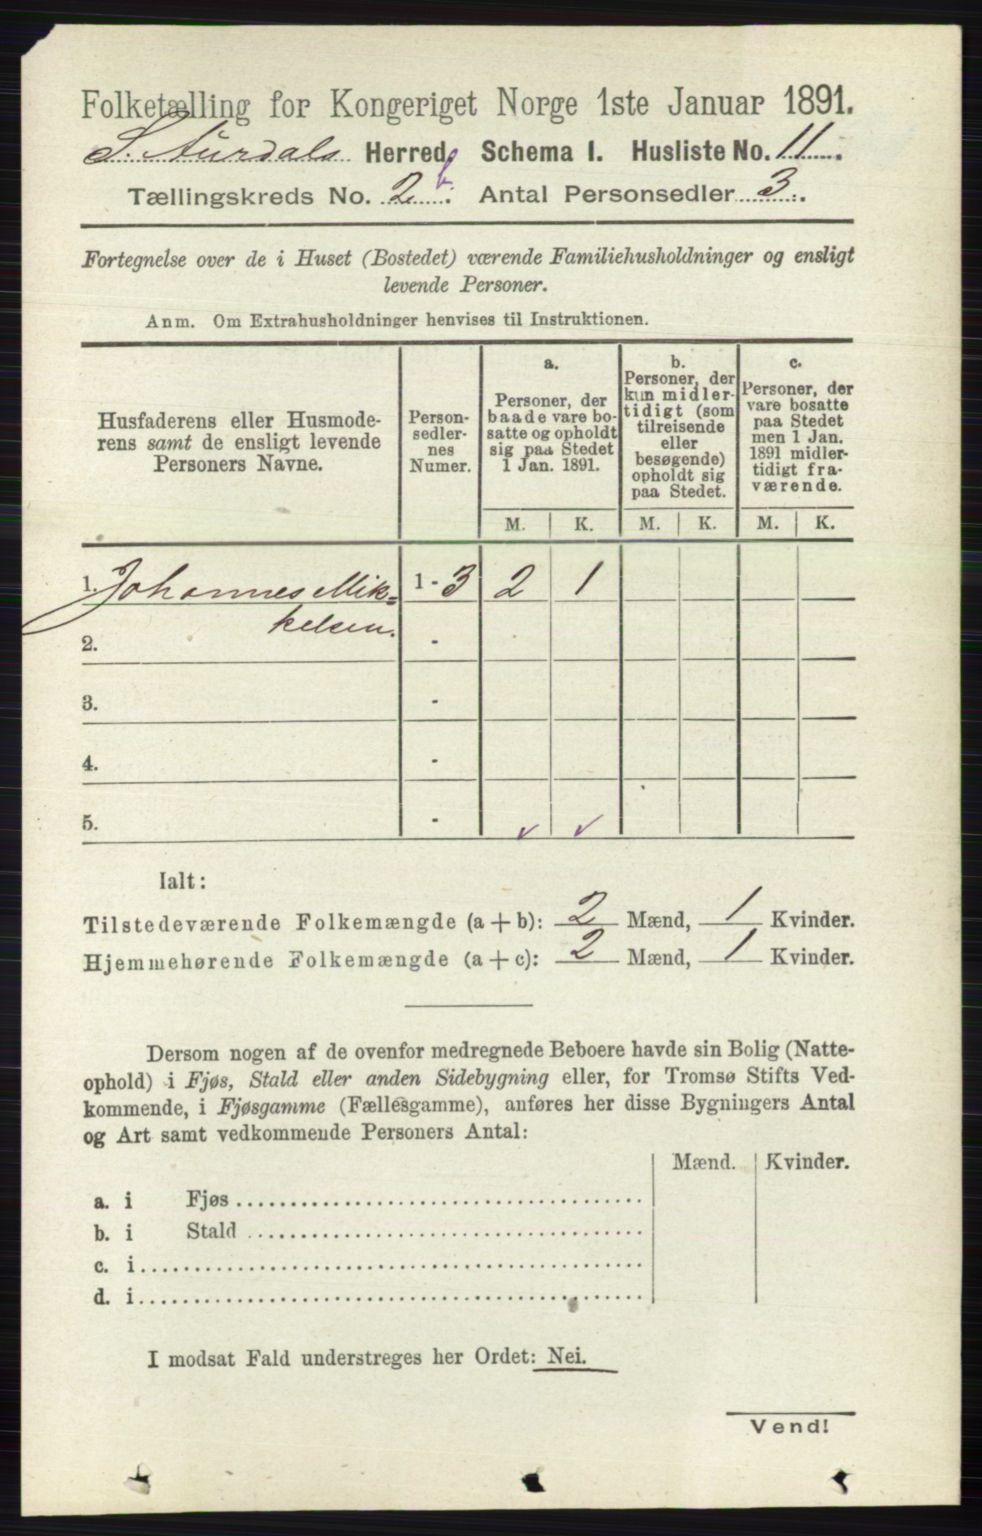 Folketælling for Kongeriget Norge 1ste Januar 1891.
S. Aurdals Herred. Schema I. Husliste No. 11.
Tællingskreds No. 2 b. Antal Personsedler 3.
Fortegnelse over de i Huset (Bostedet) værende Familiehusholdninger og ensligt
levende Personer.
Anm. Om Extrahusholdninger henvises til Instruktionen.
Husfaderens eller Husmode-
rens samt de ensligt levende
Personers Navne.
Person-
sedler-
nes
Numer.
a.
Personer, der
baade vare bo-
satte og opholdt
sig paa Stedet
1 Jan. 1891.
b.
Personer, der
kun midler-
tidigt (som
tilreisende
eller
besøgende)
opholdt sig
paa Stedet.
c.
Personer, der
vare bosatte
paa Stedet
men 1 Jan.
1891 midler-
tidigt fra-
værende.
M. K. M. K. M. K.
1. Johannes Mik= 1 - 3 2 1
kelsen.
2. -
3. -
4. -
5. - ✓ ✓
Ialt:
Tilstedeværende Folkemængde (a + b): 2 Mænd, 1 Kvinder.
Hjemmehørende Folkemængde (a + c): 2 Mænd, 1 Kvinder.
Dersom nogen af de ovenfor medregnede Beboere havde sin Bolig (Natte-
ophold) i Fjøs, Stald eller anden Sidebygning eller, for Tromsø Stifts Ved-
kommende, i Fjøsgamme (Fællesgamme), anføres her disse Bygningers Antal
og Art samt vedkommende Personers Antal:
Mænd. Kvinder.
a. i Fjøs
b. i Stald
c. i
d. i
I modsat Fald understreges her Ordet: Nei.
Vend!